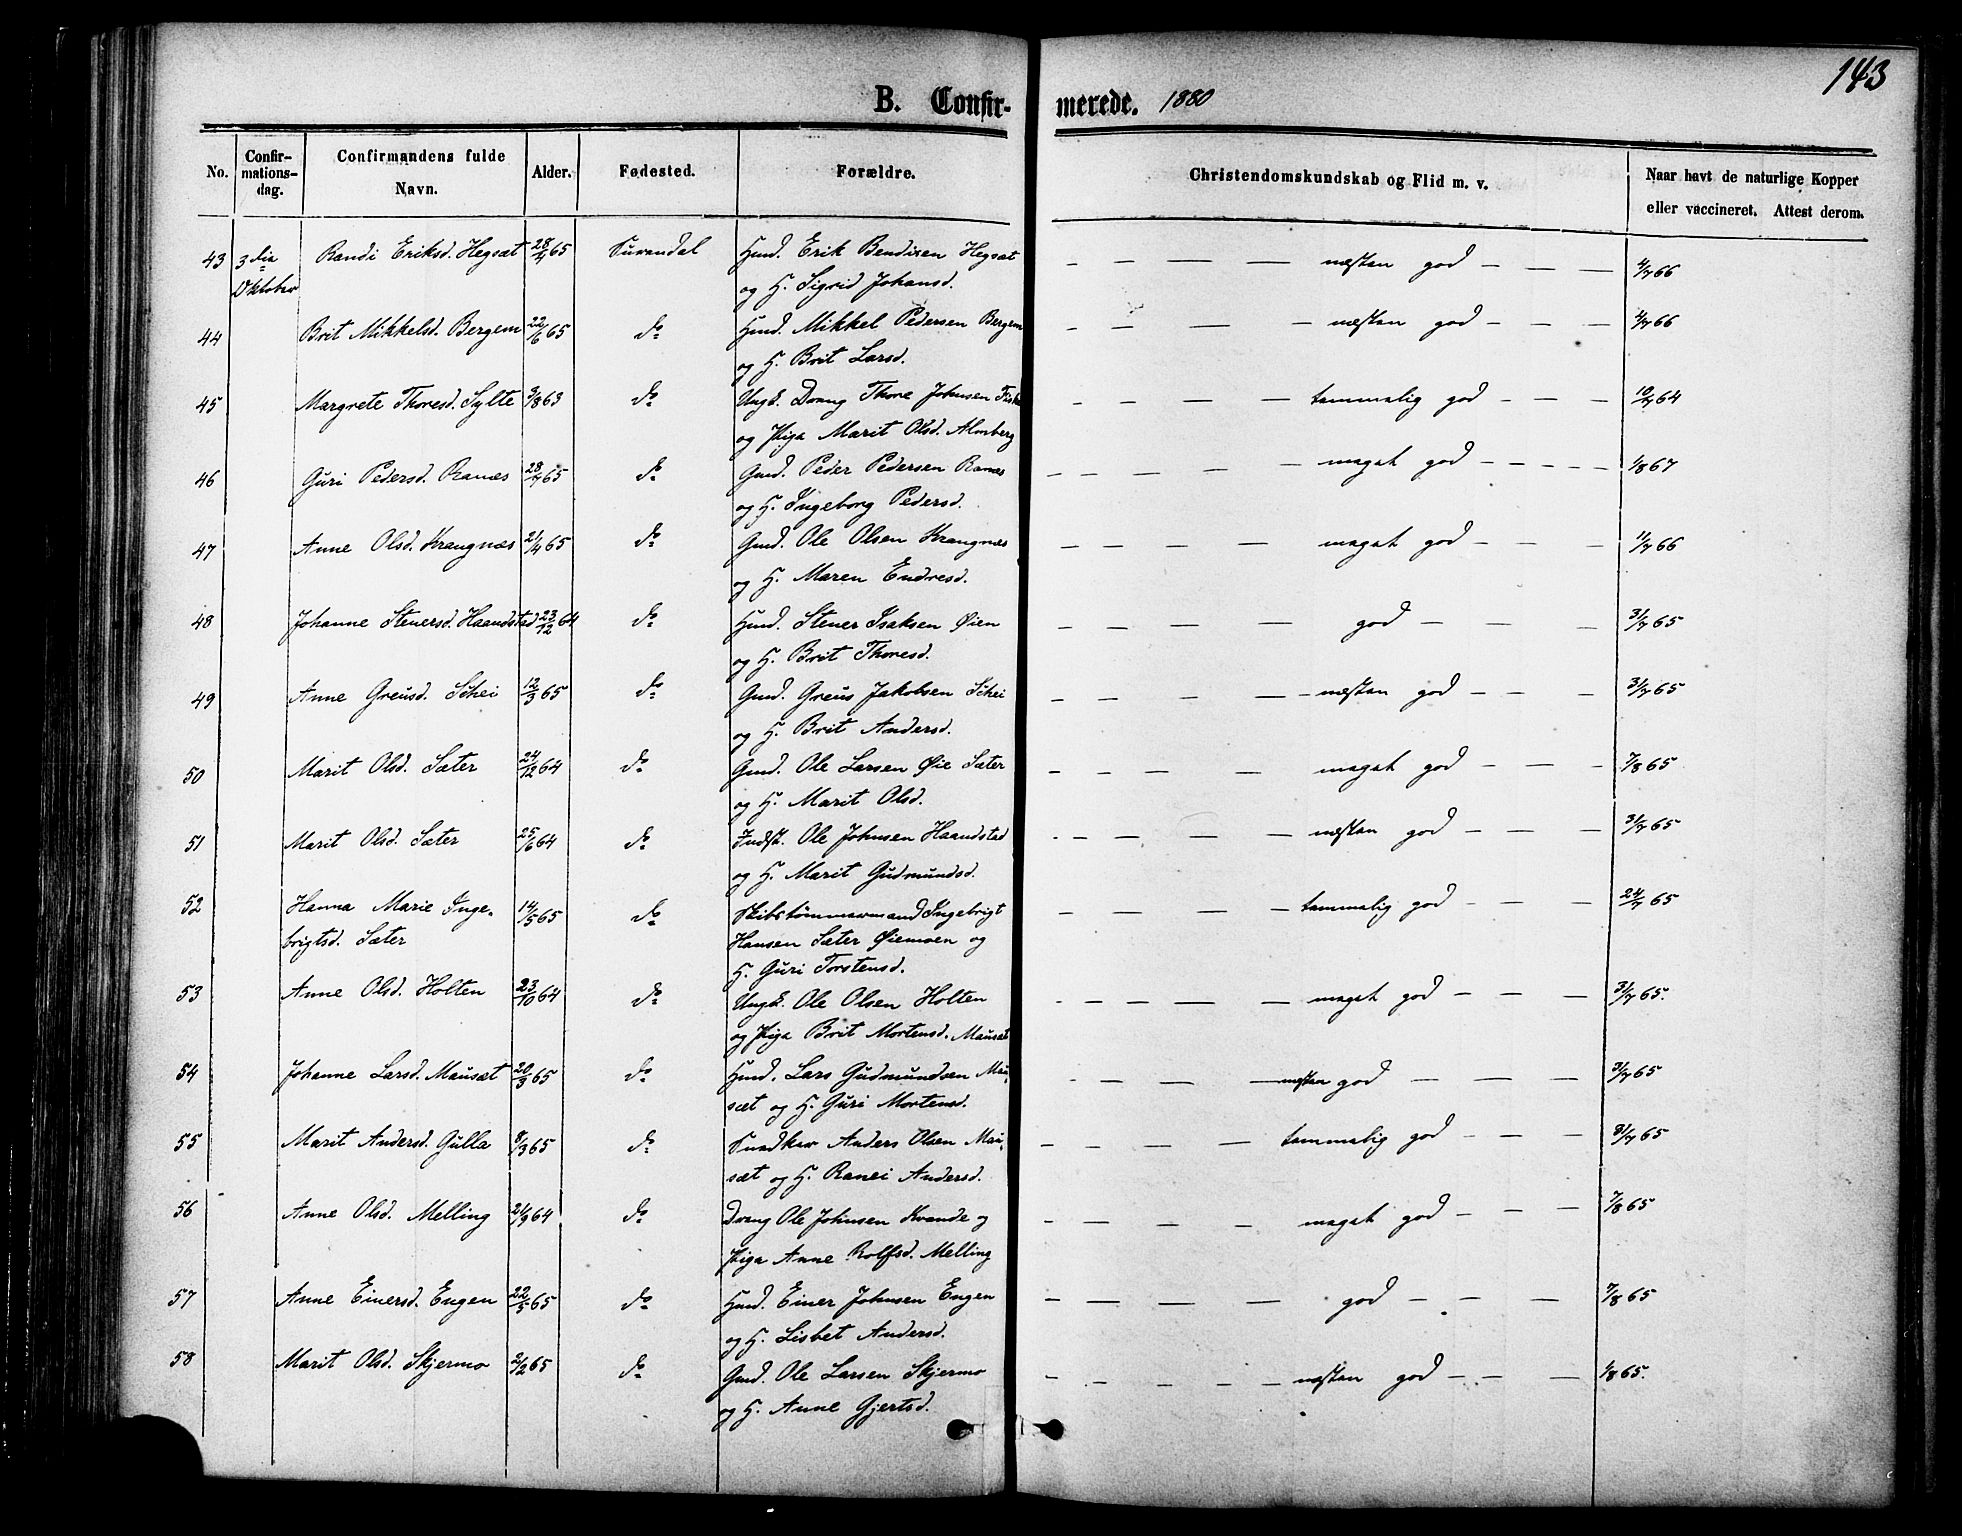 143
B. Confirmerede. 1880
No.
Confirmationsdag.
Confirmandens fulde Navn.
Alder.
Fødested.
Forældre.
Christendomskundskab og Flid m. v.
Naar havt de naturlige Kopper eller vaccineret. Attest derom.
43 3die Randi Eriksd. Hegsæt 28/4 65 Surendal Hmd. Erik Bendixen Hegsæt — — — — næsten god — — — 4/7 66
Oktober og H. Sigrid Johansd.
44 Brit Mikkelsd. Bergem 22/6 65 do Hmd. Mikkel Pedersen Bergem — — — — næsten god — — — 4/7 66
og H. Brit Larsd.
45 Margrete Thoresd. Sylte 3/8 63 do Ungk. Dreng Thore Johnsen — — — — temmelig god — — — 10/7 64
og Pige Marit Olsd. Almberg
46 Guri Pedersd. Ranæs 28/7 65 do Gmd. Peder Pedersen Ranæs — — — — meget god — — — — 1/8 67
og H. Ingeborg Pedersd.
47 Anne Olsd. Krangnæs 21/4 65 do Gmd. Ole Olsen Krangnæs — — — — meget god — — — 11/7 66
og H. Maren Endresd.
48 Johanne Stenersd. Haandstad 23/12 64 do Hmd. Stener Isaksen Øien — — — — god — — — 31/7 65
og H. Brit Thoresd.
49 Anne Greusd. Schei 12/3 65 do Gmd. Greus Jakobsen Schei — — — — næsten god — — — 31/7 65
og H. Brit Andersd.
50 Marit Olsd. Sæter 24/12 64 do Gmd. Ole Larsen Øie Sæter — — — — meget god — — — 7/8 65
og H. Marit Olsd.
51 Marit Olsd. Sæter 25/6 64 do Indst. Ole Johnsen Haandstad — — — — næsten god — — — 31/7 65
og H. Marit Gudmundsd.
52 Hanna Marie Inge- 14/5 65 do Skibstømmermand Ingebrigt — — — — temmelig god — — — 24/7 65
brigtsd. Sæter Hansen Sæter Øiemoen og
H. Guri Torstensd.
53 Anne Olsd. Holten 23/10 64 do Ungk. Ole Olsen Holten — — — — meget god — — — 31/7 65.
og Pige Brit Mortensd. Mausæt
54 Johanne Larsd. Mausæt 20/3 65 do Hmd. Lars Gudmundsen Mau- — — — — næsten god — — — 31/7 65
sæt og H. Guri Mortensd.
55 Marit Andersd. Gulla 8/3 65 do Snedker Anders Olsen Mau- — — — — temmelig god — — — 31/7 65
sæt og H. Ranei Andersd.
56 Anne Olsd. Melling 21/9 64 do Dreng Ole Johnsen Kvande og — — — — meget god — — — 7/8 65
Pige Anne Rolfsd. Melling
57 Anne Einersd. Engen 22/5 65 do Hmd. Einer Johnsen Engen — — — — god — — — 7/8 65
og H. Lisbet Andersd.
58 Marit Olsd. Skjermo 2/2 65 do Gmd. Ole Larsen Skjermo — — — — — næsten god — — — 1/8 65.
og H. Anne Gjertsd.